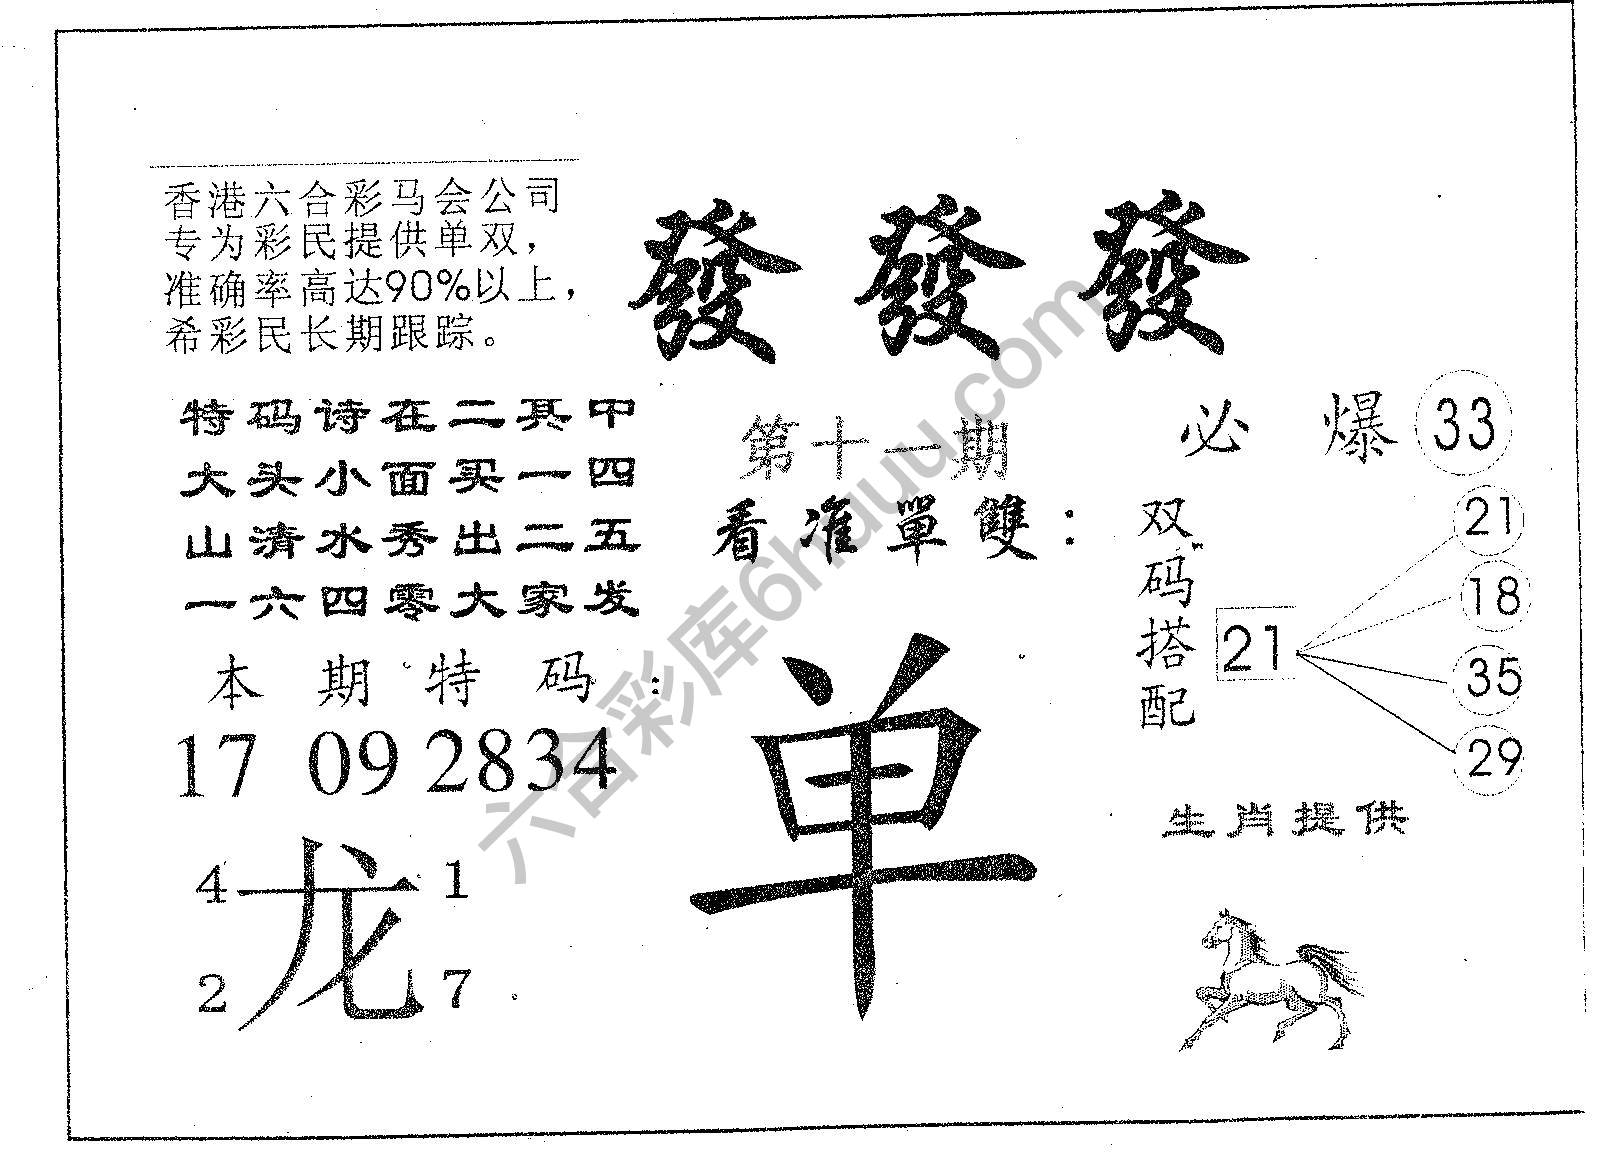 香港六合彩马会公司
专为彩民提供单双，
准确率高达90%以上，
希彩民长期跟踪。
發 發 發
特码诗在二其中
大头小面买一四
山清水秀出二五
一六四零大家发
本期特码：
17 09 28 34
4 龙 1
2 7
第十一期
看准單雙：
单
必爆 33
双码搭配
21
21
18
35
29
生肖提供
六合彩库6hauu.com